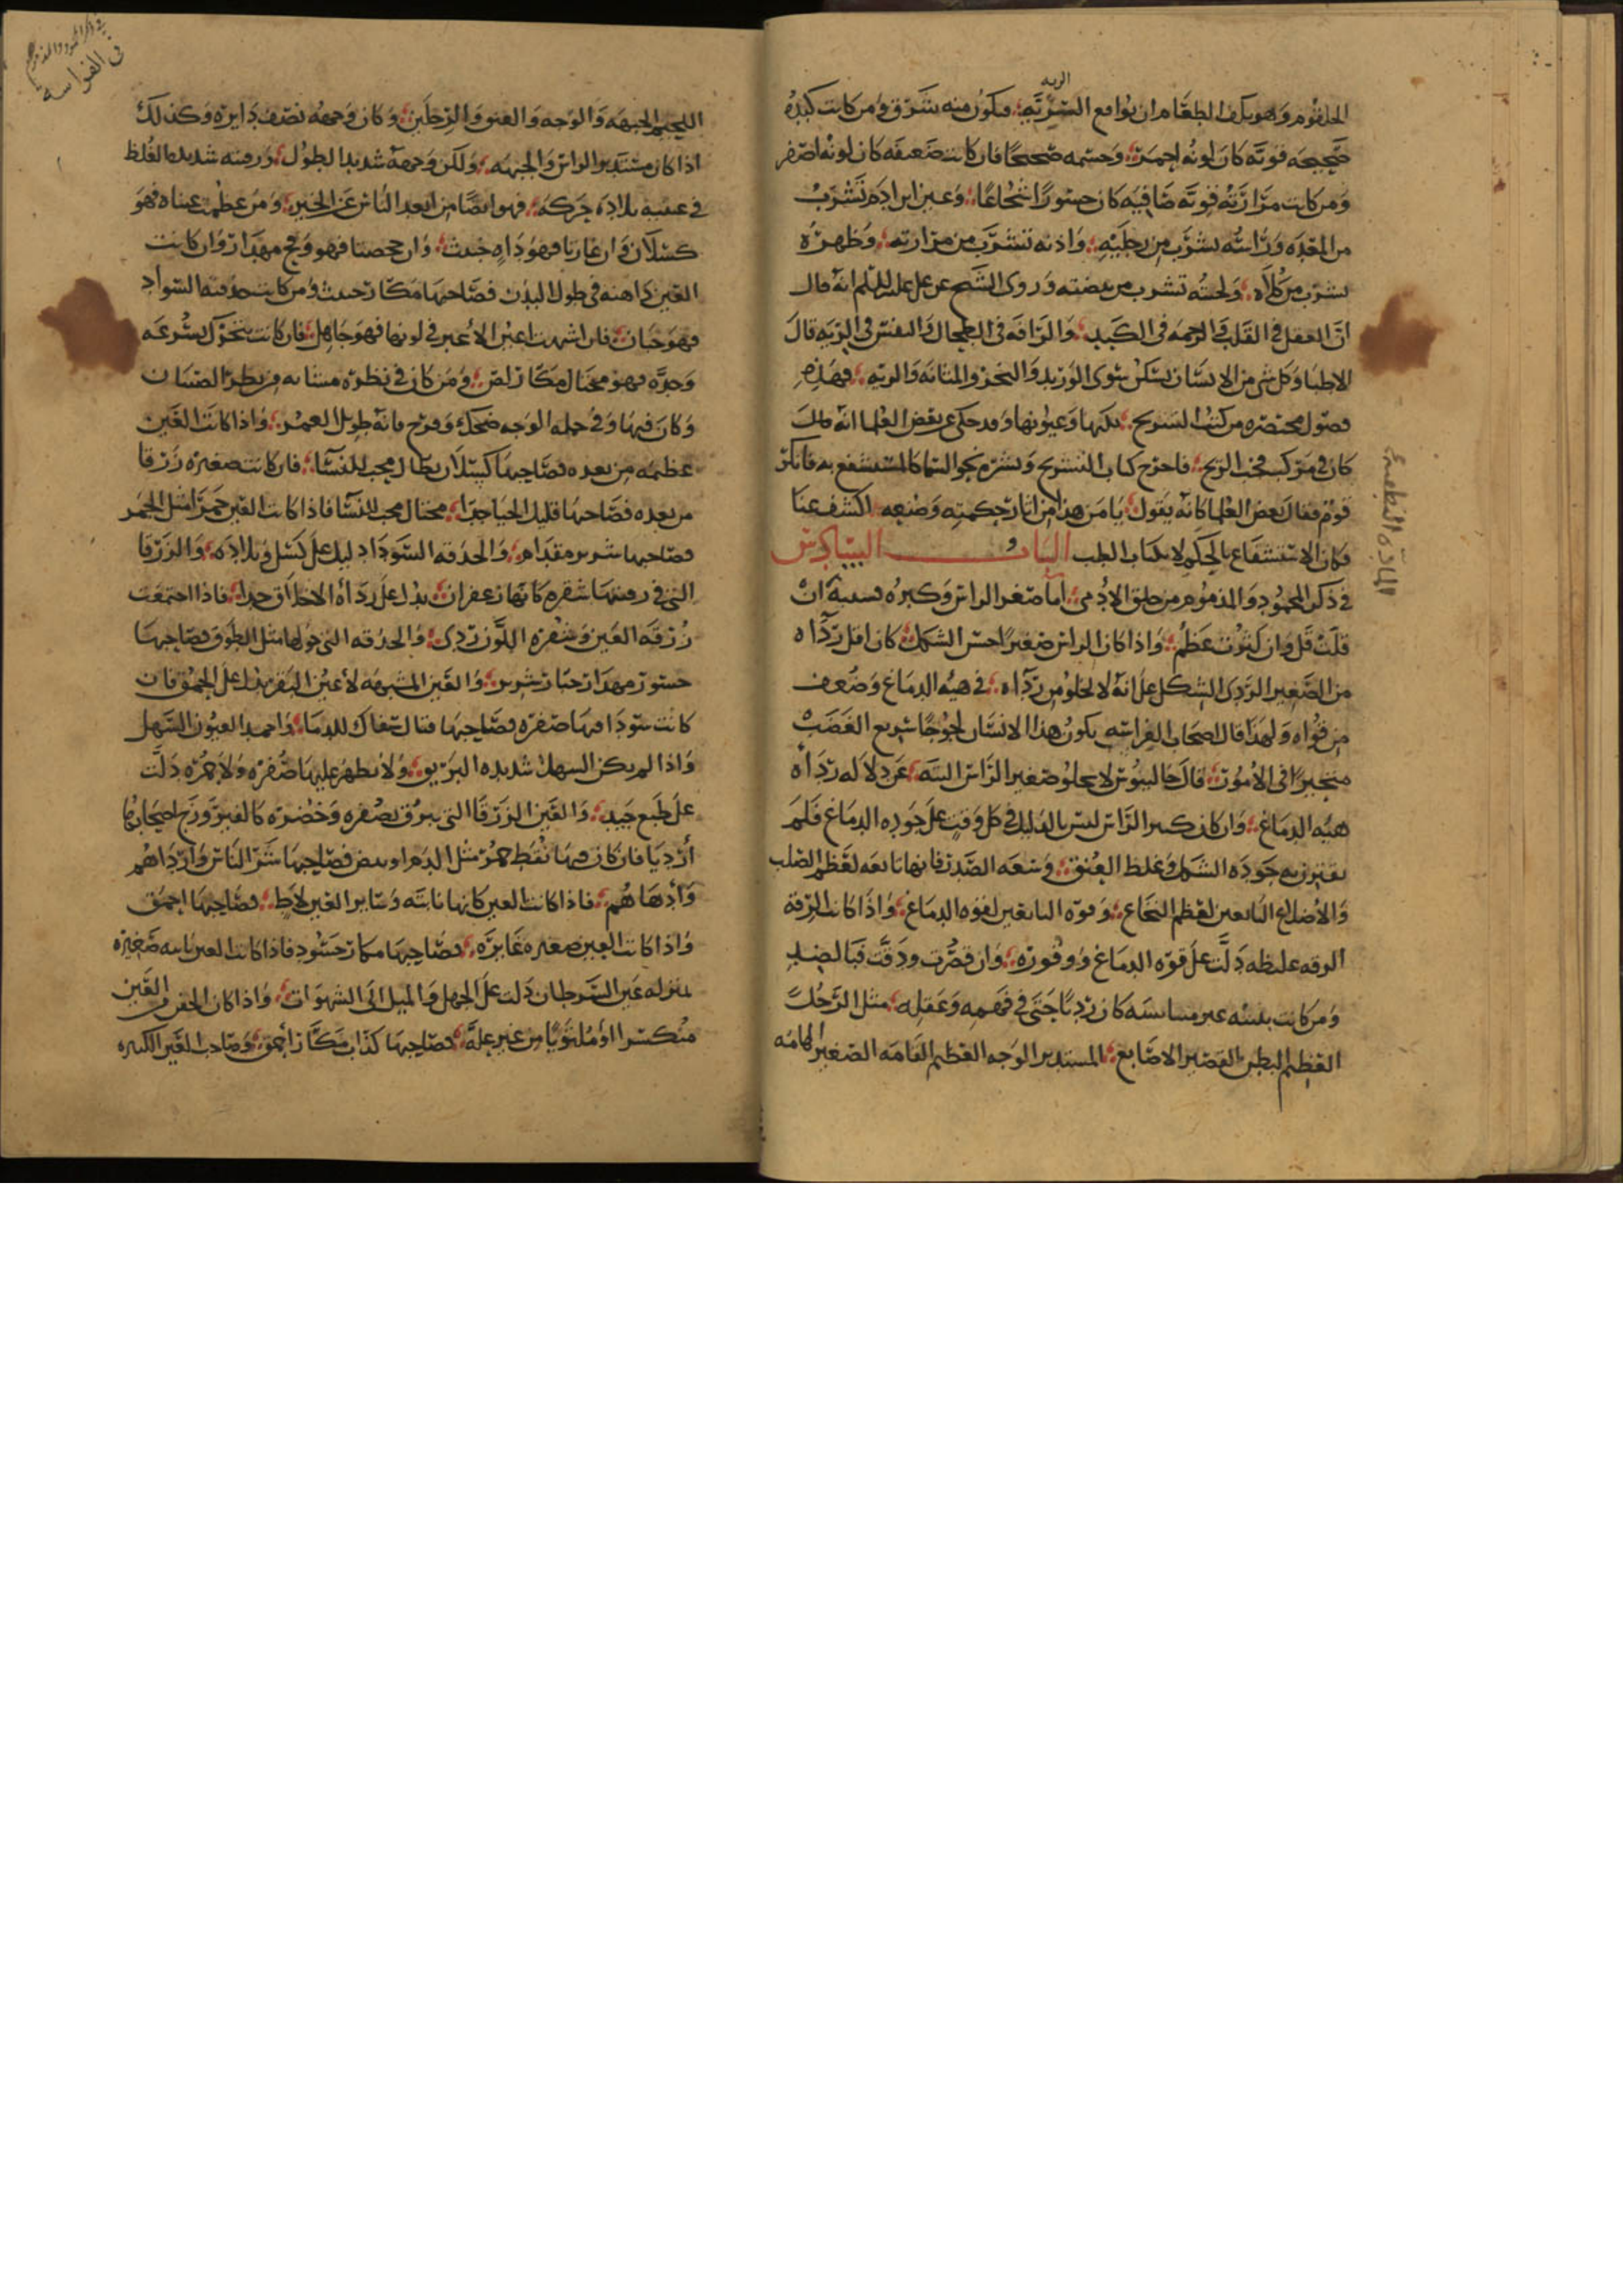 الريه
الحلقوم وهو يكف الطعام ان يواقع السريه فيكون منه شرق ومن كانت كبده
صحيحه قويه كان لونه احمر وجسمه صحيحا فان كانت ضعيفه كان لونه اصفر
ومن كانت مرارته قويه صافيه كان جسورا شجاعا وعين ابن ادم تشرب
من المعده وراسه يشرب من رجليه واذنه تشرب من مرارته وظهره
يشرب من كلاه ولحيته تشرب من بيضته وروى عن على عليه السلم انه قال
ان العقل في القلب والرحمه في الكبد والرافه في الطحال والنفس في الريه قال
الاطبا وكل شي من الانسان يسكن سوى الوريد والمثانه والريه فهذه
فصول مختصره من كتب التشريح نكتها وعيونها وقد حكى عن بعض العلما انه
كان في مركب فخب الريح فاخرج كتاب التشريح ونشره نحو السما كالمستشفع به فانكر
قوم فقال بعض العلما كانه يقول يا من هذا من اثار حكمته وصنعه اكشف عنا
فكان الاستشفاع بالحكم لا بكتاب الطب الباب السادس
في ذكر المحمود والمذموم من خلق الادمي اما صغر الراس وكبره فسببه ان
قلت قل وان كثرت عظم واذا كان الراس صغيرا حسن الشكل كان اقل رداه
من الصغير الردى الشكل على انه لا يخلو من رداه في هيه الدماغ وضعف
من قواه ولهذا قال اصحاب الفراسه يكون هذا الانسان لجوجا سريع الغضب
متحيرا في الامور قال جالينوس لا يخلو صغير الراس البته عن دلاله رداه
هيه الدماغ وان كان كبير الراس ليس بالدليل في كل وقت على جوده الدماغ فلم
يقترن به جوده الشكل وغلظ العنق وسعه الصدر فانها تابعه لعظم الصلب
والاضلاع التابعين لعظم النخاع وقوه التابعين لقوه الدماغ واذا كانت الرقبه
غليظه دلت على قوه الدماغ ووفوره وان قصرت ودقت فبالضد
ومن كانت بنيته غير متناسبه كان رديا حتى في فهمه وعقله مثل الرجل
العظيم البطن القصير الاصابع المستدير الوجه العظيم القامه الصغير الهامه
في الفراسه
اللحيم الجبهه والوجه والعنق والرجلين وكان وجهه نصف دايره وكذلك
اذا كان مستدير الراس والجبهه ولكن وجهه شديد الطول ورقبته شديده الغلظ
في عينيه بلاده حركه فهو ايضا من ابعد الناس عن الخير ومن عظمت عيناه فهو
كسلان وان غارتا فهو داه خبث وان جحظتا فهو وقح مهذار وان كانت
العين ذاهبه في طول البدن فصاحبها مكار خبيث ومن كانت حدقته السواد
فهو جبان فان اشبهت اعين الاعير في لونها فهو جاهل فان كانت تتحرك بسرعه
وحده فهو محتال مكار لص ومن كان في نظره مشابه من نظر الصبيان
وكان فيها وفي جمله الوجه ضحك وفرح فانه طويل العمر واذا كانت العين
عظيمه مرتعده فصاحبها كسلان بطال محب للنسا فان كانت صغيره زرقا
مرتعده فصاحبها قليل الحيا جدا محتال محب للنسا فاذا كانت العين حمرا مثل الجمر
فصاحبها شرير مقدام والحدقه السودا دليل على كسل وبلاده والزرقا
التي في زرقتها شقره كانها زعفران يدل على رداه الاخلاق جدا فاذا اجتمعت
زرقه العين وشقره اللون ردى والحدقه التي حولها مثل الطوق فصاحبها
حسود مهذار جبان شرير والعين المشبهه لاعين البقر يدل على الحمق فان
كانت سودا فيها صفره فصاحبها قتال سفاك للدما واحمد العيون السهل
واذا لم يكن السهل شديده البريق ولا يظهر عليها صفره ولا حمره دلت
على طبع جيد والعين الزرقا التي بزرق بصفره وخضره كالفيروزج اصحابها
ارديا فان كان فيها نقط حمر مثل الدم او بيض فصاحبها شر الناس وارداهم
وادهاهم فاذا كانت العين كانها ناتيه وساير العين لاط فصاحبها احمق
واذا كانت العين صغيره غايره فصاحبها مكار حسود فاذا كانت العين ناتيه صغيره
بمنزله عين السرطان دلت على الجهل والميل الى الشهوات واذا كان الجفن من العين
منكسرا او ملتويا من غير عله فصاحبها كذاب مكار احمق وصاحب العين الكبيره